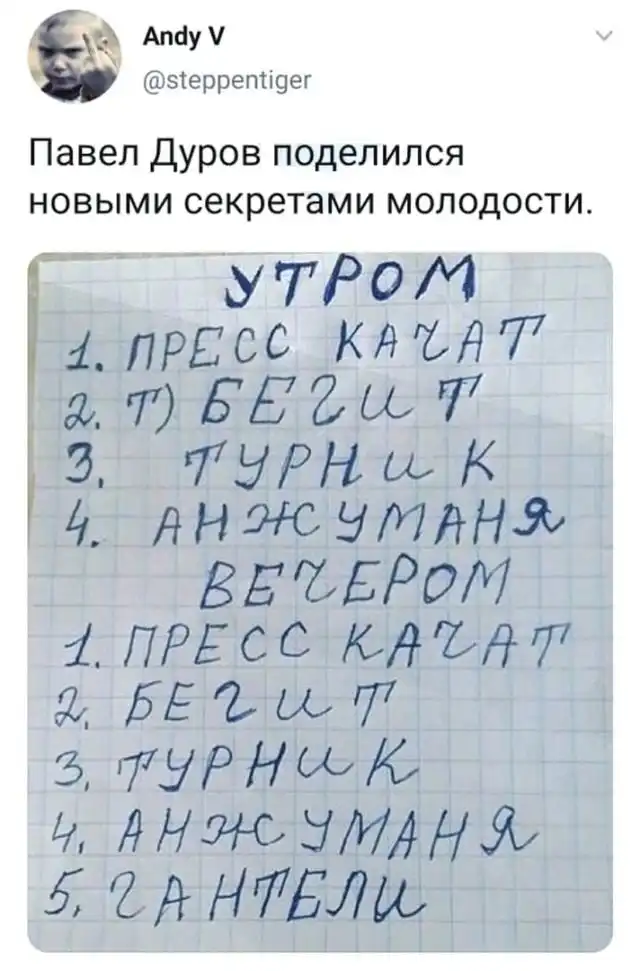 Andy V
@steppentiger
Павел Дуров поделился
новыми секретами молодости.
УТРОМ
1. ПРЕСС КАЧАТ
2. Т) БЕГИТ
3. ТУРНИК
4. АНЖУМАНЯ
ВЕЧЕРОМ
1. ПРЕСС КАЧАТ
2. БЕГИТ
3. ТУРНИК
4. АНЖУМАНЯ
5. ГАНТЕЛИ